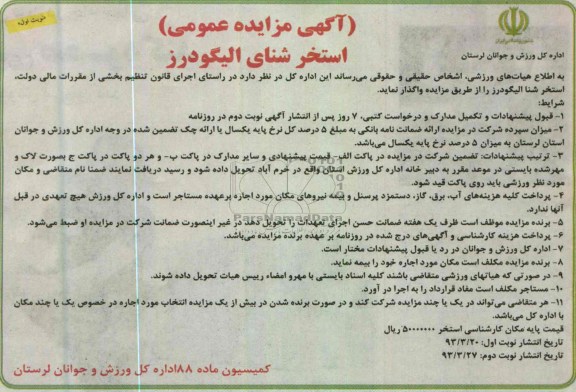 نوبت اول
(آگهی مزایده عمومی)
استخر شنای الیگودرز
اداره کل ورزش و جوانان لرستان
به اطلاع هیات‌های ورزشی، اشخاص حقیقی و حقوقی می‌رساند این اداره کل در نظر دارد در راستای اجرای قانون تنظیم بخشی از مقررات مالی دولت،
استخر شنا الیگودرز را از طریق مزایده واگذار نماید.
شرایط:
۱- قبول پیشنهادات و تکمیل مدارک و درخواست کتبی، ۷ روز پس از انتشار آگهی نوبت دوم در روزنامه
۲- میزان سپرده شرکت در مزایده ارائه ضمانت نامه بانکی به مبلغ ۵ درصد کل نرخ پایه یکسال یا ارائه چک تضمین شده در وجه اداره کل ورزش و جوانان
استان لرستان به میزان ۵ درصد نرخ پایه یکسال می‌باشد.
۳- ترتیب پیشنهادات: تضمین شرکت در مزایده در پاکت الف- قیمت پیشنهادی و سایر مدارک در پاکت ب- و هر دو پاکت در پاکت ج بصورت لاک و
مهرشده بایستی در موعد مقرر به دبیر خانه اداره کل ورزش استان واقع در خرم آباد تحویل داده شود و رسید دریافت نمایند ضمنا نام متقاضی و مکان
مورد نظر ورزشی باید روی پاکت قید شود.
۴- پرداخت کلیه هزینه‌های آب، برق، گاز، دستمزد پرسنل و بیمه نیروهای مکان مورد اجاره برعهده مستاجر است و اداره کل ورزش هیچ تعهدی در قبل
آنها ندارد.
۵- برنده مزایده موظف است ظرف یک هفته ضمانت حسن اجرای تعهدات را تحویل دهد در غیر اینصورت ضمانت شرکت در مزایده او ضبط می‌شود.
۶- پرداخت هزینه کارشناسی و آگهی‌های درج شده در روزنامه بر عهده برنده مزایده می‌باشد.
۷- اداره کل ورزش و جوانان در رد یا قبول پیشنهادات مختار است.
۸- برنده مزایده مکلف است مکان مورد اجاره خود را بیمه نماید.
۹- در صورتی که هیاتهای ورزشی متقاضی باشند کلیه اسناد بایستی با مهرو امضاء رییس هیات تحویل داده شوند.
۱۰- مستاجر مکلف است مفاد قرارداد را به اجرا در آورد.
۱۱- هر متقاضی می‌تواند در یک یا چند مزایده شرکت کند و در صورت برنده شدن در بیش از یک مزایده انتخاب مورد اجاره در خصوص یک یا چند مکان
با اداره کل می‌باشد.
قیمت پایه مکان کارشناسی استخر ۵۰۰۰۰۰۰۰ ریال
تاریخ انتشار نوبت اول: ۹۳/۳/۲۰
تاریخ انتشار نوبت دوم: ۹۳/۳/۲۷
کمیسیون ماده ۸۸اداره کل ورزش و جوانان لرستان